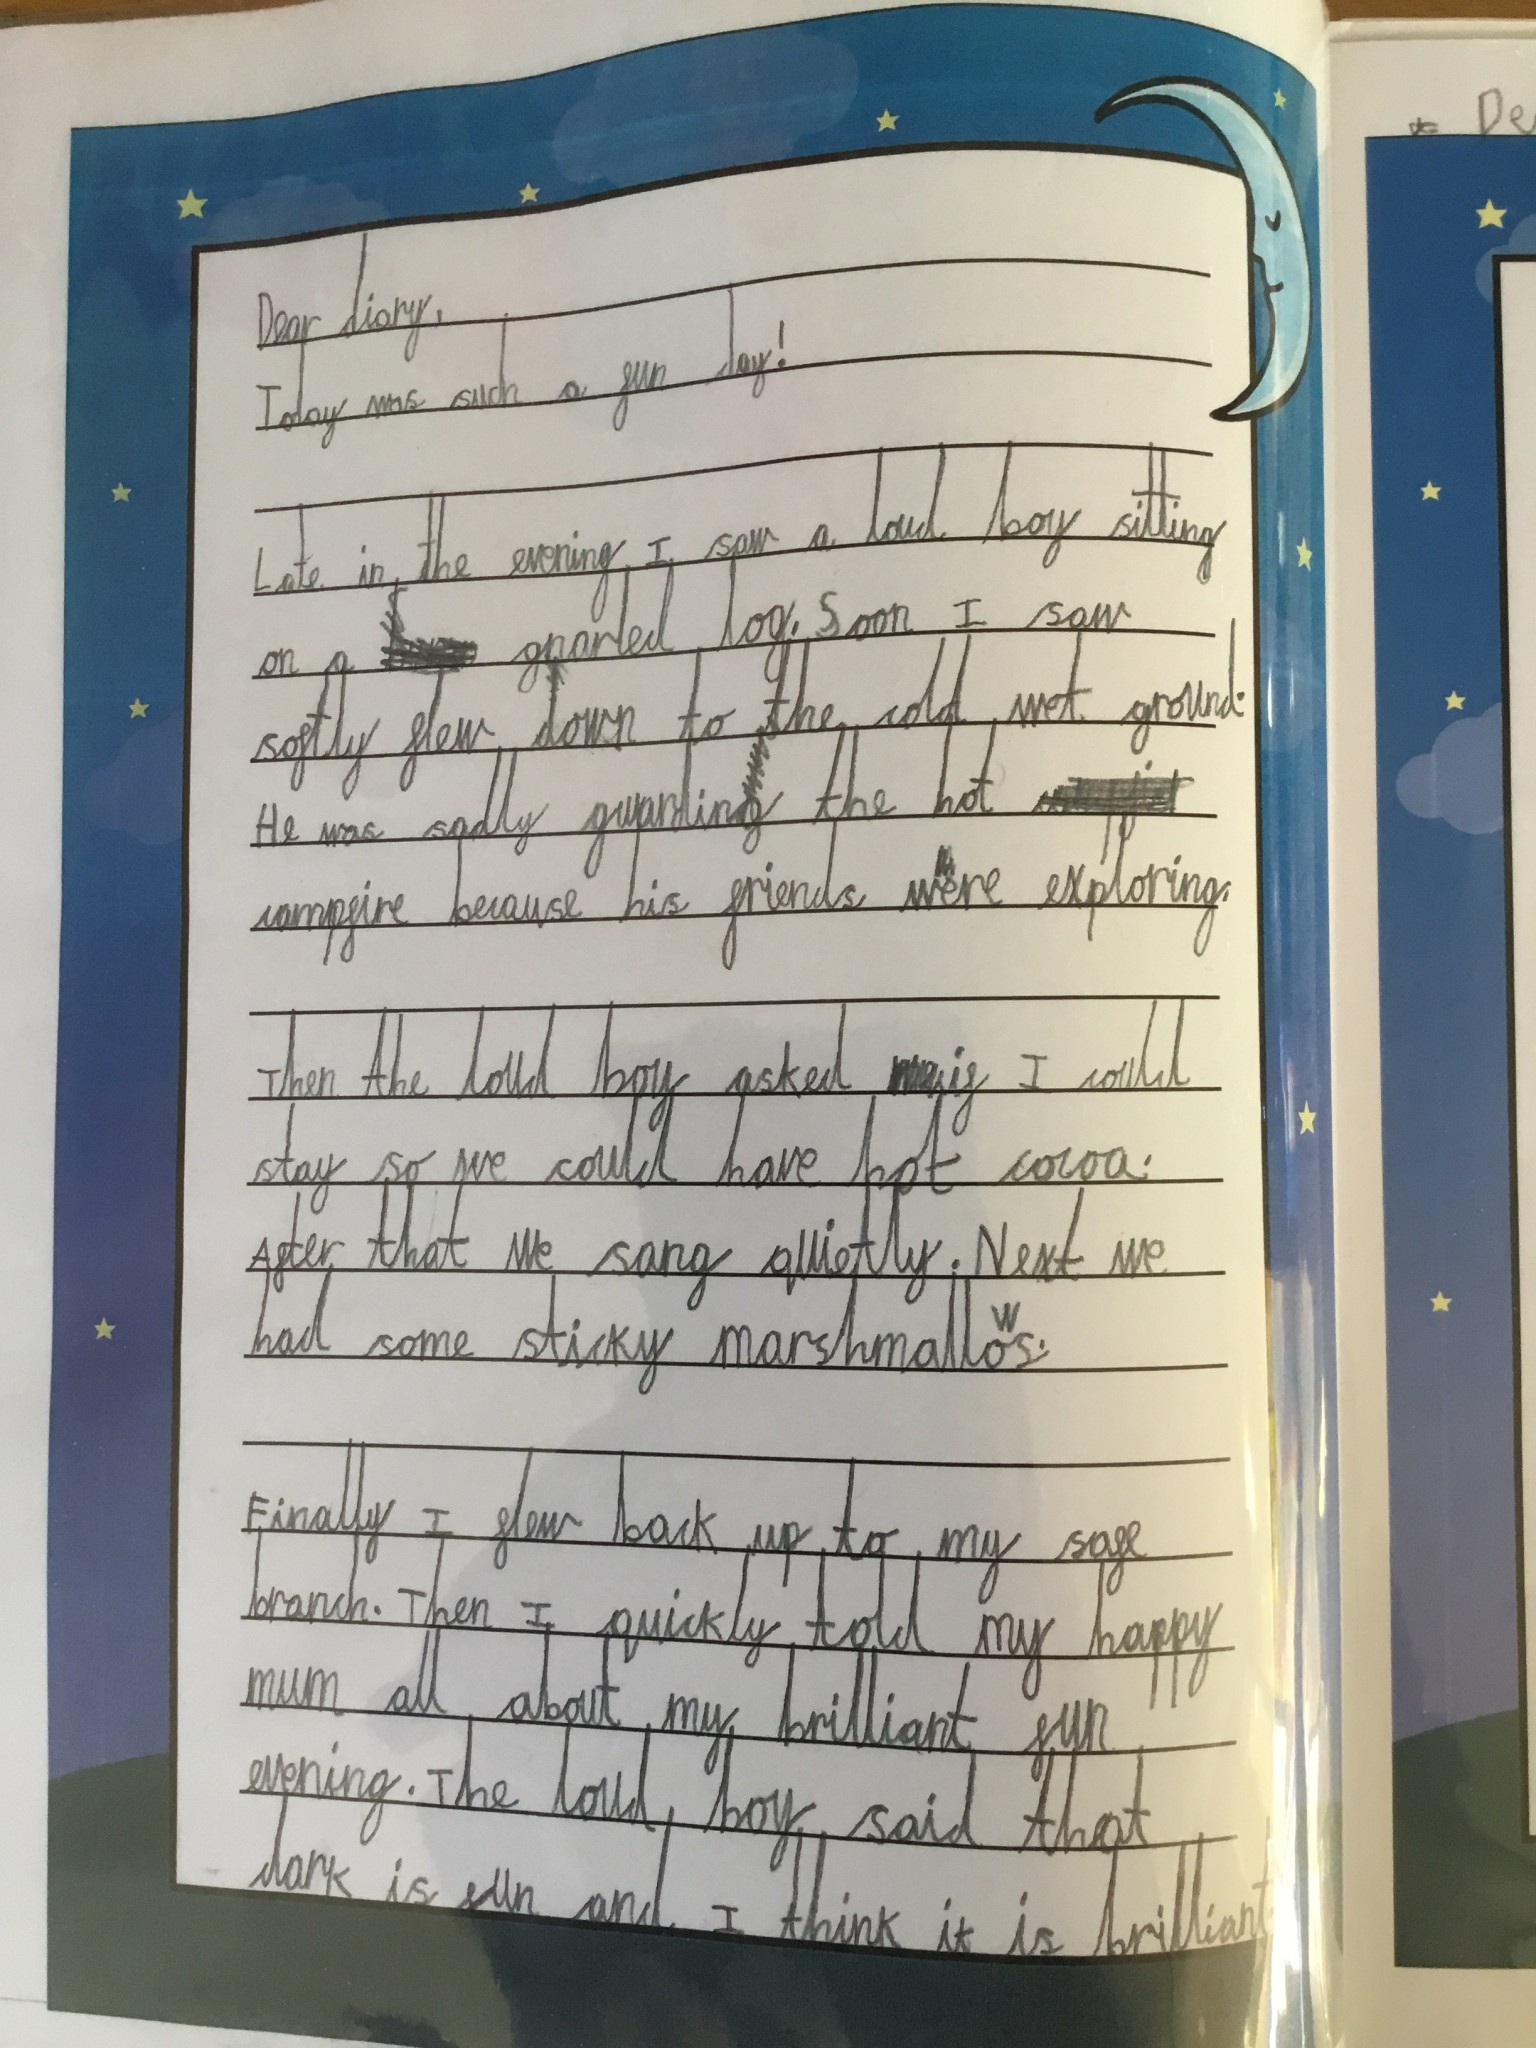 Dear diary,
Today was such a fun day!
Late in the evening I saw a loud boy sitting
on a gnarled log. Soon I saw
softly flew down to the cold wet ground.
He was sadly guarding the hot
campfire because his friends were exploring.
Then the loud boy asked if I could
stay so we could have hot cocoa.
After that we sang quietly. Next we
had some sticky marshmallows.
Finally I flew back up to my safe
branch. Then I quickly told my happy
mum all about my brilliant fun
evening. The loud boy said that
dark is fun and I think it is brilliant.